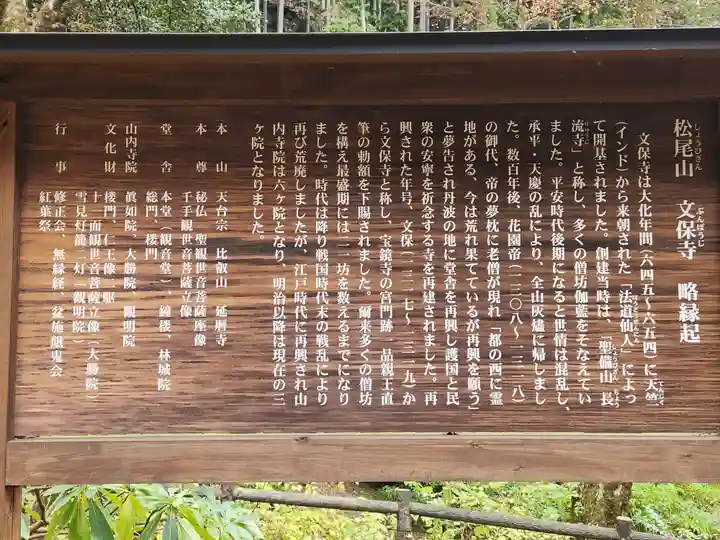 松尾山 文保寺 略縁起
しょうびざん ぶんぽうじ
文保寺は大化年間(六四五〜六五四)に天竺
(インド)から来朝された「法道仙人」によっ
て開基されました。創建当時は、「聖備山 長
流寺」と称し、多くの僧坊伽藍をそなえてい
ました。平安時代後期になると世情は混乱し、
承平・天慶の乱により、全山灰燼に帰しまし
た。数百年後、花園帝(一三〇八〜一三一八)
の御代、帝の夢枕に老僧が現れ「都の西に霊
地がある、今は荒れ果てているが再興を願う」
と夢告され丹波の地に堂舎を再興し護国と民
衆の安寧を祈念する寺を再建されました。再
興された年号、文保(一三一七〜一三一九)か
ら文保寺と称し、宝鏡寺の宮門跡一品親王直
筆の勅額を下賜されました。爾来多くの僧坊
を構え最盛期には二一坊を数えるまでになり
ました。時代は降り戦国時代末の戦乱により
再び荒廃しましたが、江戸時代に再興され山
内寺院は六ヶ院となり、明治以降は現在の三
ヶ院となりました。
本山 天台宗 比叡山 延暦寺
本尊 秘仏 聖観世音菩薩座像
千手観世音菩薩立像
堂舎 本堂(観音堂) 鐘楼、林城院
総門、楼門
山内寺院 眞如院、大勝院、観明院
文化財 楼門、仁王像一躯
十一面観世音菩薩立像(大勝院)
雪見灯籠二灯(観明院)
行事 修正会、無縁経、盆施餓鬼会
紅葉祭